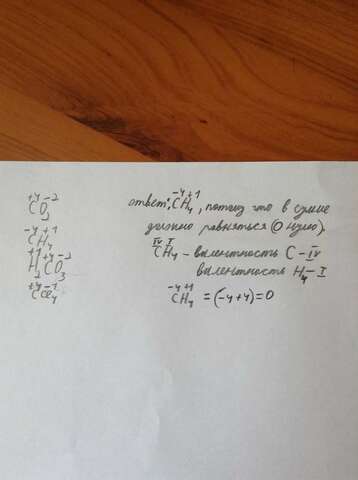 +4 -2
CO2
-4 +1
CH4
+1 +4 -2
H2CO3
+4 -1
CCl4
ответ: -4 +1
CH4, потому что в сумме
должно равняться (0 нулю).
IV I
CH4 - валентность C - IV
валентность H4 - I
-4 +1
CH4 = (-4+4) = 0